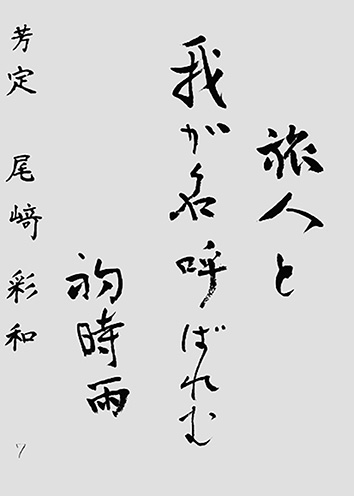 旅人と
我が名呼ばれむ
初時雨
芳定 尾﨑彩和
7